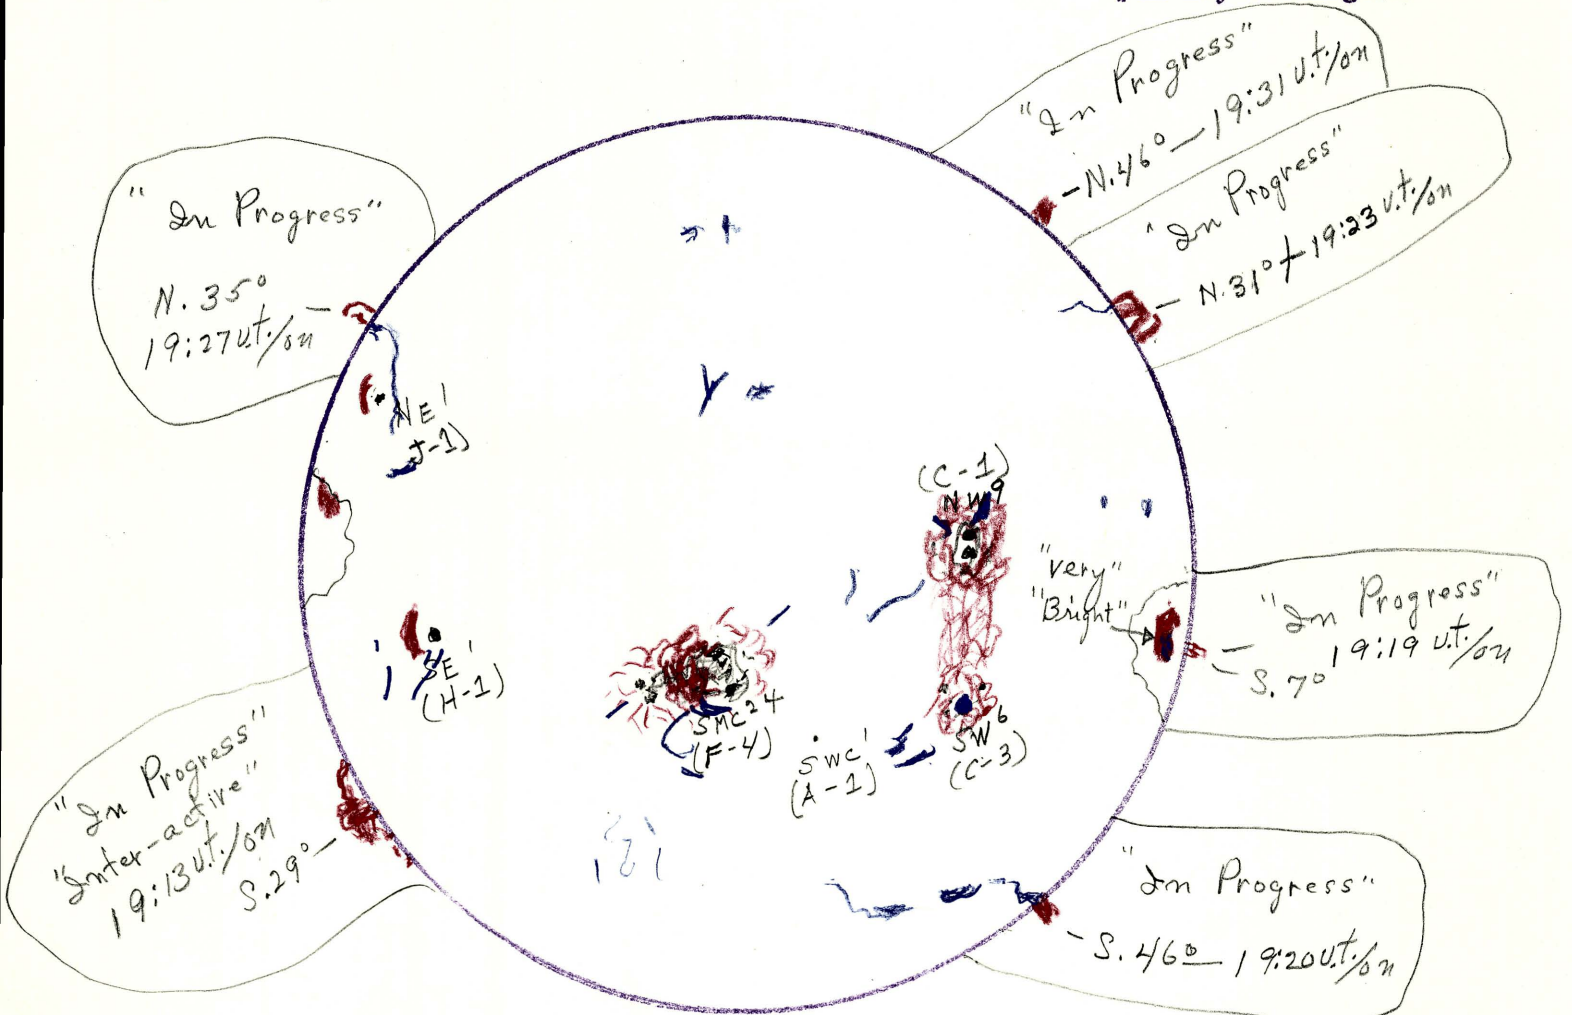 "In Progress"
-N.46° — 19:31 U.T./on
"In Progress"
- N.31° + 19:23 U.T./on
"In Progress"
N. 35° —
19:27 U.T./on
NE 1
J-1)
(C-1)
NW 9
"very"
"Bright"
"In Progress"
19:19 U.T./on
S. 7°
SE 1
(H-1)
SMC 24
(F-4)
SWC 1
(A-1)
SW 6
(C-3)
"In Progress"
"Inter-active"
19:13 U.T./on
S.29° —
"In Progress"
-S. 46° — 19:20 U.T./on